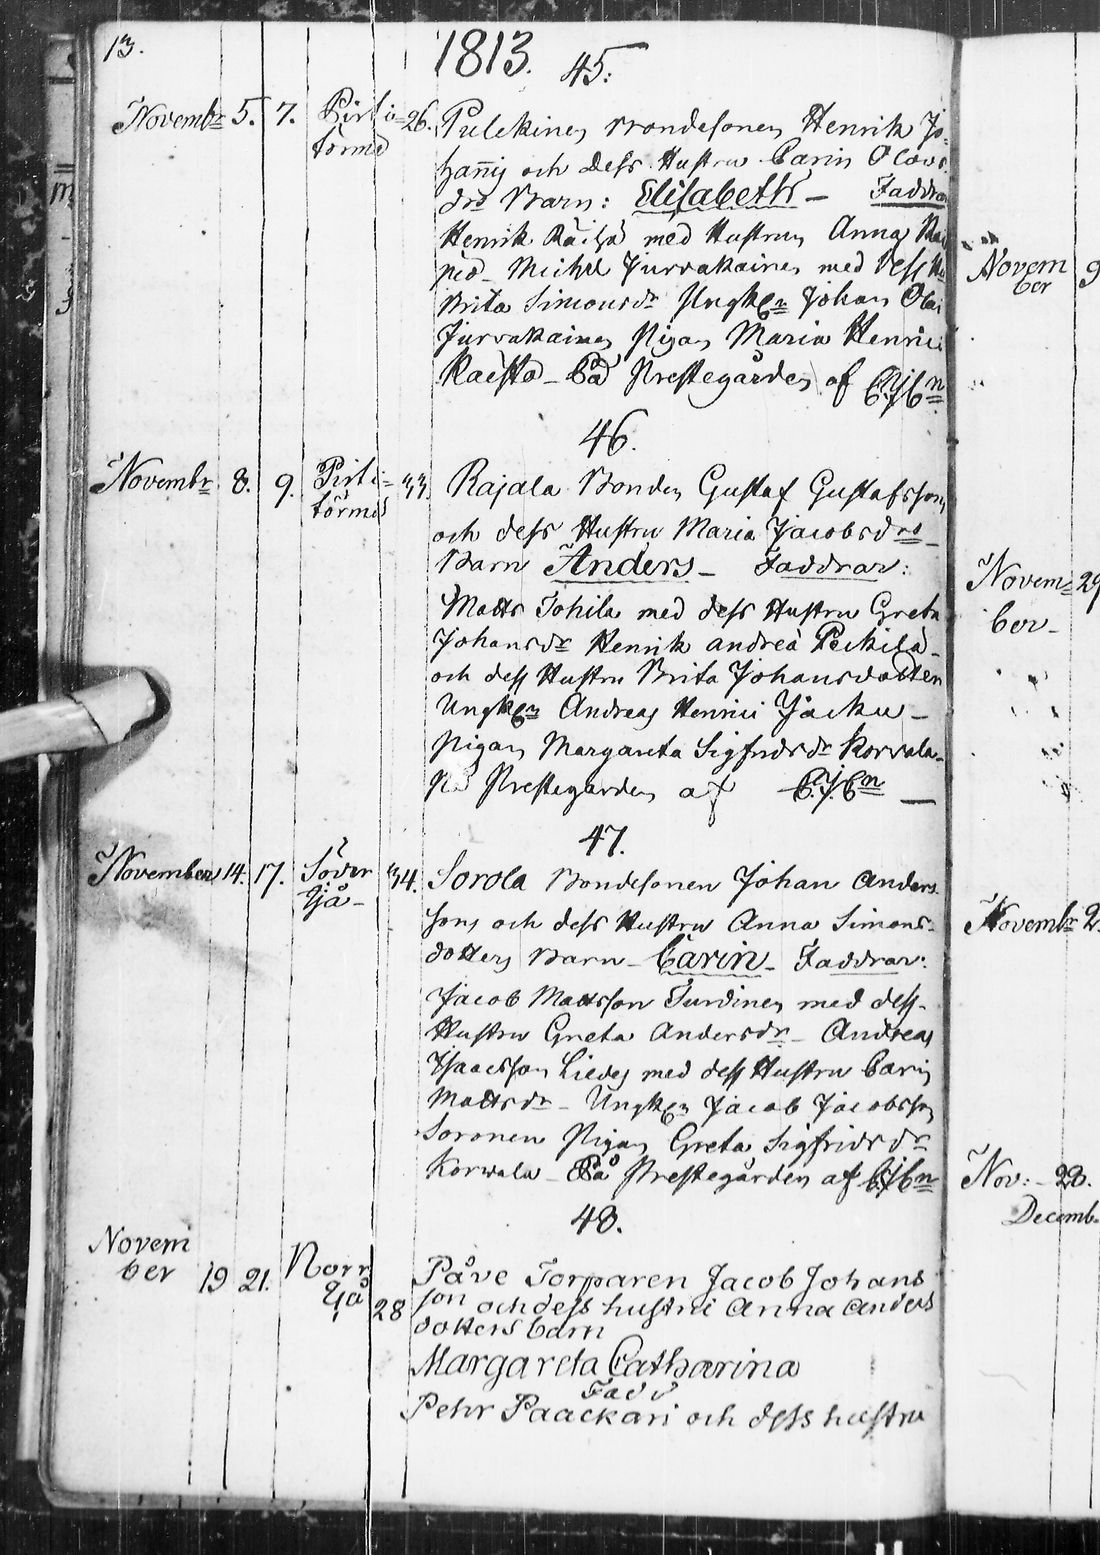 13.
1813.
45:
Novembr 5. 7. Pirti= 26. Pulckinen Bondesonen Henrik Jo-
törmä hannis och dess Hustru Carin Olavs
drs Barn: Elisabeth - Faddrar
Henrik Räisä med Hustrun Anna
Michel Jurvakainen med dess
Brita Simonsdr Ungkn Johan Olai
Jurvakainen Pigan Maria Henrici
Raistò - På Prestegården af C.J.Cn
46.
Novembr 8. 9. Pirti= 33 Rajala Bonden Gustaf Gustafsson
törmä och dess Hustru Maria Jacobsdrs
Barn Anders - Faddrar:
Matts Tohila med dess Hustru Greta
Johansdr Henrik Andreä Peckilä -
och dess Hustru Brita Johansdotter
Ungkn Andreas Henrici Jäcku -
Pigan Margareta Sigfridsdr Korvala -
På Prestegården af C.J.Cn -
47.
November 14. 17. Söder 34. Sorola Bondesonen Johan Anders-
Yjå - sons och dess Hustru Anna Simons-
dotters Barn - Carin - Faddrar:
Jacob Mattsson Turdinen med dess
Hustru Greta Andersdr - Andreas
Isaacsson Liedes med dess Hustru Carin
Mattsdr - Ungkn Jacob Jacobsson
Soronen Pigan Greta Sigfridsdr
Korwala - På Prestegården af C.J.Cn
48.
Novem
ber 19 21. Norr
Yjå 28 Påve Torparen Jacob Johans
son och dess hustru Anna Anders
dotters barn
Margareta Catharina
Fadd
Pehr Paackari och dess hustru
Novem
ber 9
Novem= 29
ber -
Novembr 2
Nov: - 28.
Decemb